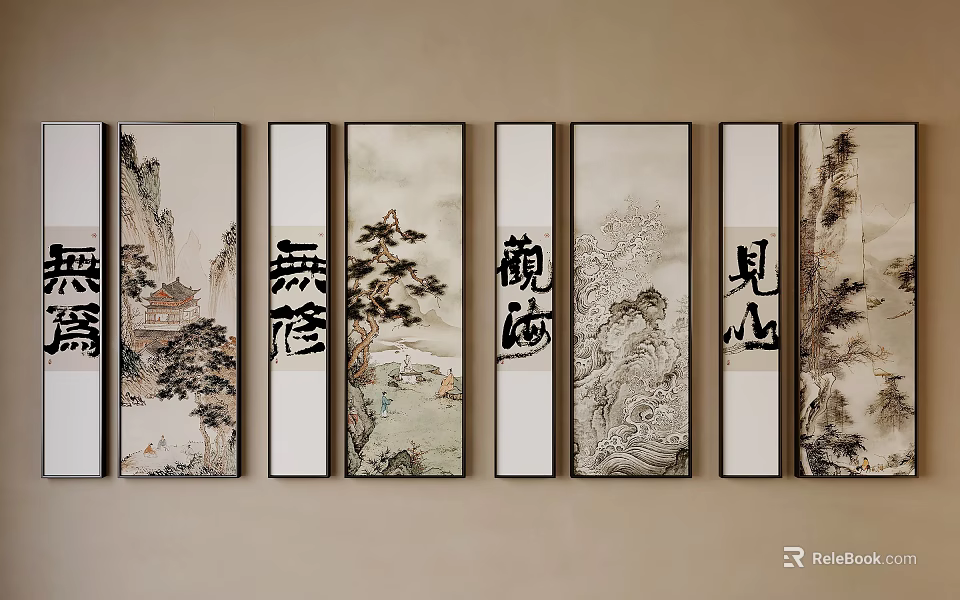 無為
無修
觀海
見山
ReleBook.com